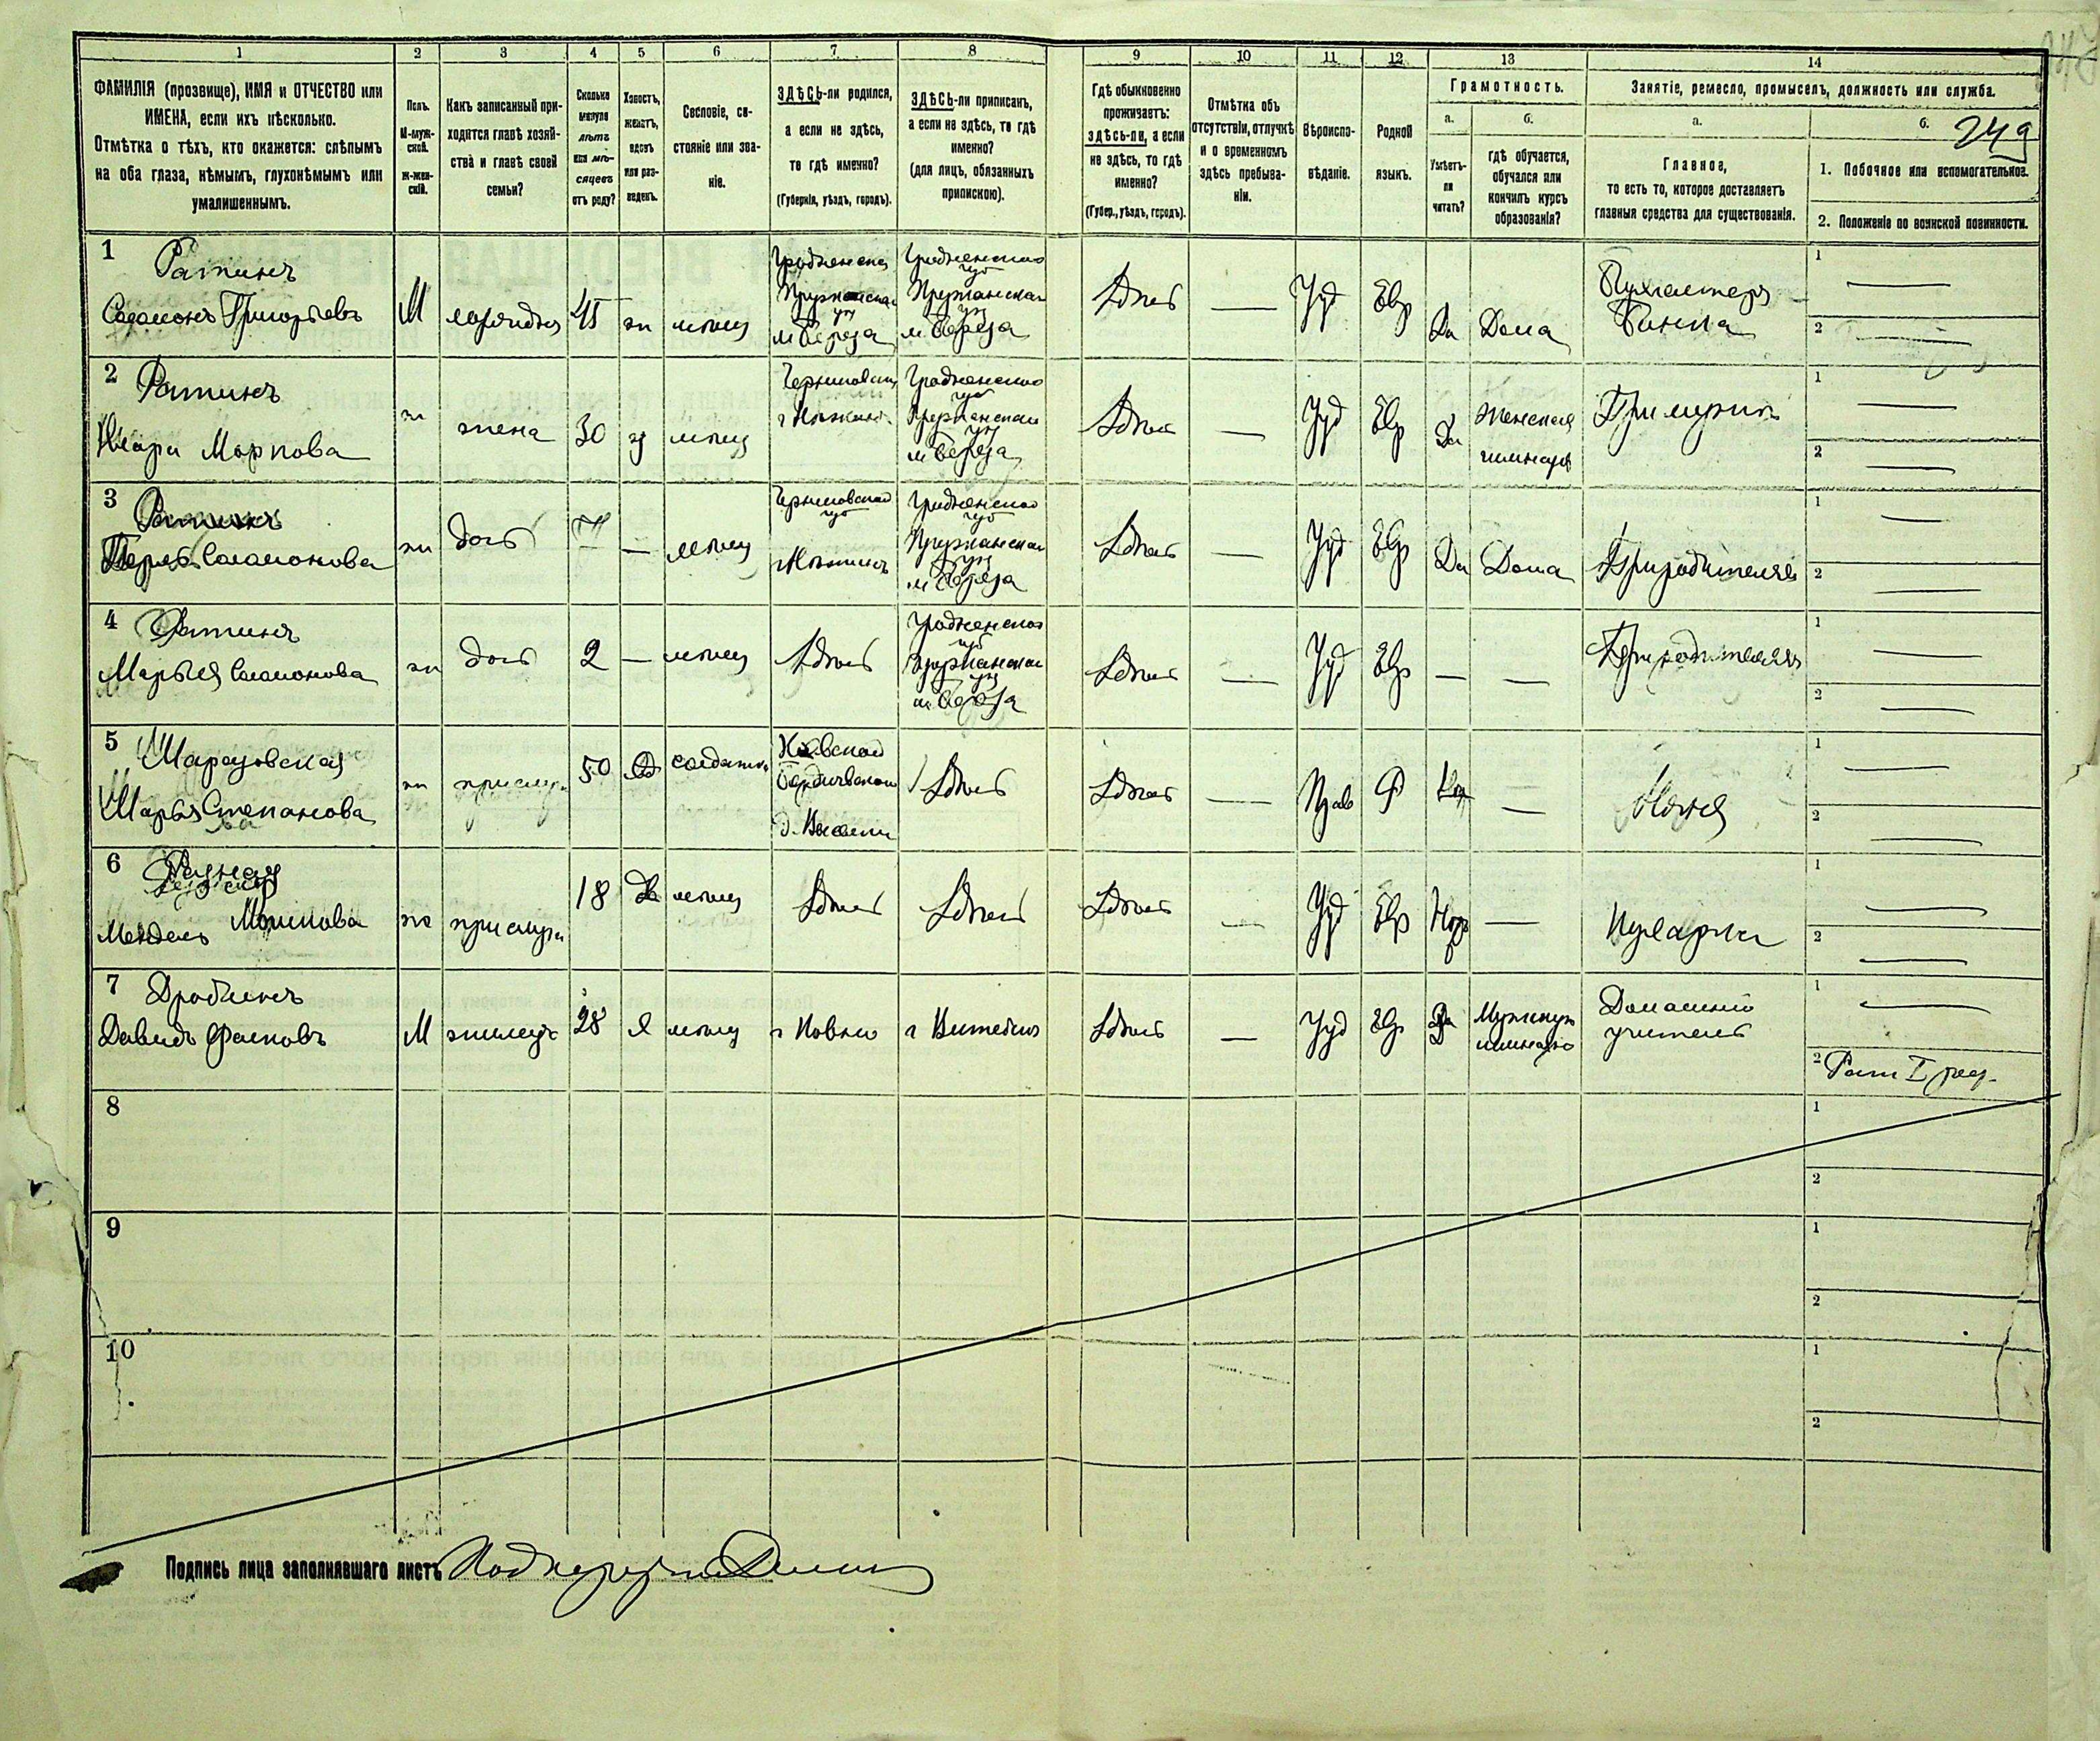 249
1
2
3
4
5
6
7
8
9
10
11
12
13
14
ФАМИЛІЯ (прозвище), ИМЯ и ОТЧЕСТВО или
ИМЕНА, если ихъ нѣсколько.
Отмѣтка о тѣхъ, кто окажется: слѣпымъ
на оба глаза, нѣмымъ, глухонѣмымъ или
умалишеннымъ.
Полъ.
М-муж-
ской.
ж-жен-
скій.
Какъ записанный при-
ходится главѣ хозяй-
ства и главѣ своей
семьи?
Сколько
минуло
лѣтъ
или мѣ-
сяцевъ
отъ роду?
Холостъ,
женатъ,
вдовъ
или раз-
веденъ.
Сословіе, со-
стояніе или зва-
ніе.
ЗДѢСЬ-ли родился,
а если не здѣсь,
то гдѣ именно?
(Губернія, уѣздъ, городъ).
ЗДѢСЬ-ли приписанъ,
а если не здѣсь, то гдѣ
именно?
(для лицъ, обязанныхъ
припискою).
Гдѣ обыкновенно
проживаетъ:
здѣсь-ли, а если
не здѣсь, то гдѣ
именно?
(Губер., уѣздъ, городъ).
Отмѣтка объ
отсутствіи, отлучкѣ
и о временномъ
здѣсь пребыва-
ніи.
Вѣроиспо-
вѣданіе.
Родной
языкъ.
Грамотность.
а.
Умѣетъ-
ли
читать?
б.
гдѣ обучается,
обучался или
кончилъ курсъ
образованія?
Занятіе, ремесло, промыселъ, должность или служба.
а.
Главное,
то есть то, которое доставляетъ
главныя средства для существованія.
б.
1. Побочное или вспомогательное.
2. Положеніе по воинской повинности.
1
Ратинъ
Григорьевъ
М
45
жн
мѣщ
Гродненской
Пружанскаго
у
м Береза
Гродненской
губ
Пружанскаго
у
м Береза
Здѣсь
—
Іуд
Евр
Да
Дома
Бухгалтеръ
Банка
1 —
2 —
2
Ратинъ
Маркова
ж
жена
30
з
мѣщ
Черниговской
г Нѣжинъ
Гродненской
губ
Пружанскаго
у
м Береза
Здѣсь
—
Іуд
Евр
Да
Женская
гимназія
При мужѣ
1 —
2 —
3
Ратинъ
Саламонова
ж
дочь
—
мѣщ
Черниговской
губ
г Нѣжинъ
Гродненской
губ
Пружанскаго
у
м Береза
Здѣсь
—
Іуд
Евр
Да
Дома
При родителяхъ
1 —
2 —
4
Ратинъ
Марья Саламонова
ж
дочь
2
—
мѣщ
Здѣсь
Гродненской
губ
Пружанскаго
у
м Береза
Здѣсь
—
Іуд
Евр
—
—
При родителяхъ
1 —
2 —
5
Марья Степанова
ж
прислуга
50
солдатка
Кіевской
Бердичевскаго
Здѣсь
Здѣсь
—
Прав
Р
—
Няня
1 —
2 —
6
ж
прислуга
18
Дв
мѣщ
Здѣсь
Здѣсь
Здѣсь
—
Іуд
Евр
—
Кухарка
1 —
2 —
7
Давидъ
М
жилецъ
28
мѣщ
г Ковно
г Витебскъ
Здѣсь
—
Іуд
Евр
Да
Домашній
учитель
1 —
2 Рат I раз.
8
1
2
9
1
2
10
1
2
Подпись лица заполнявшаго листъ